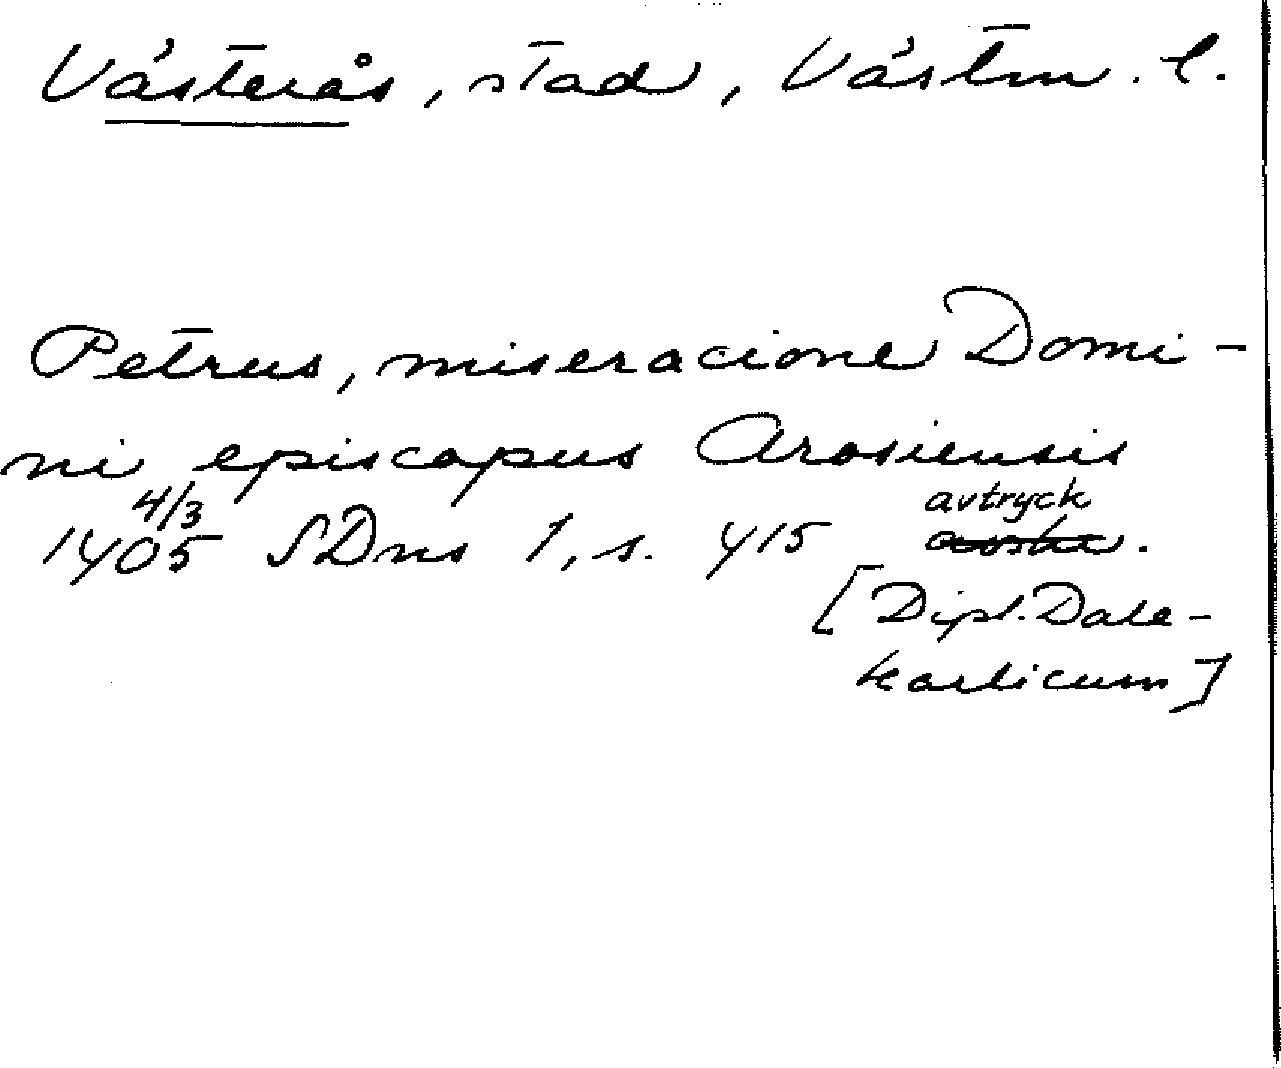 Västerås, stad, Västm. l.
Petrus, miseracione Domi-
ni episcopus Arosiensis
4/3 avtryck
1405 SDns 1, s. 415 avskr.
[Dipl. Dale-
karlicum]